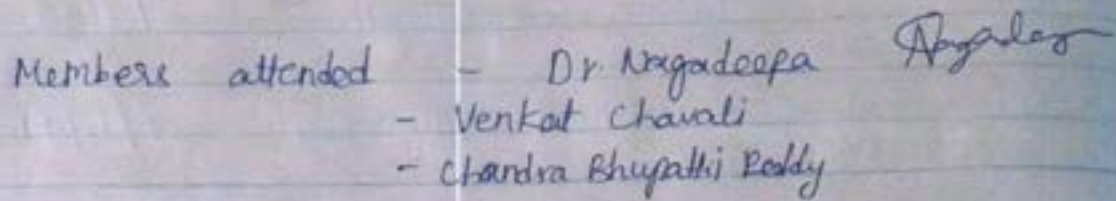 Members attended - Dr Nagadeepa
- Venkat Chavali
- Chandra Bhupathi Reddy